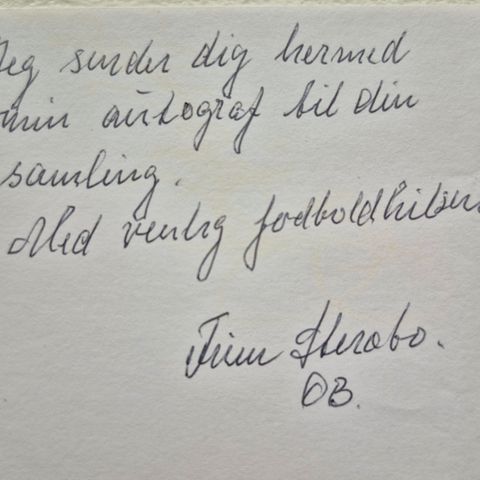 Jeg sender dig hermed
min autograf til din
samling.
Med venlig fodboldhilsen
Finn
OB.